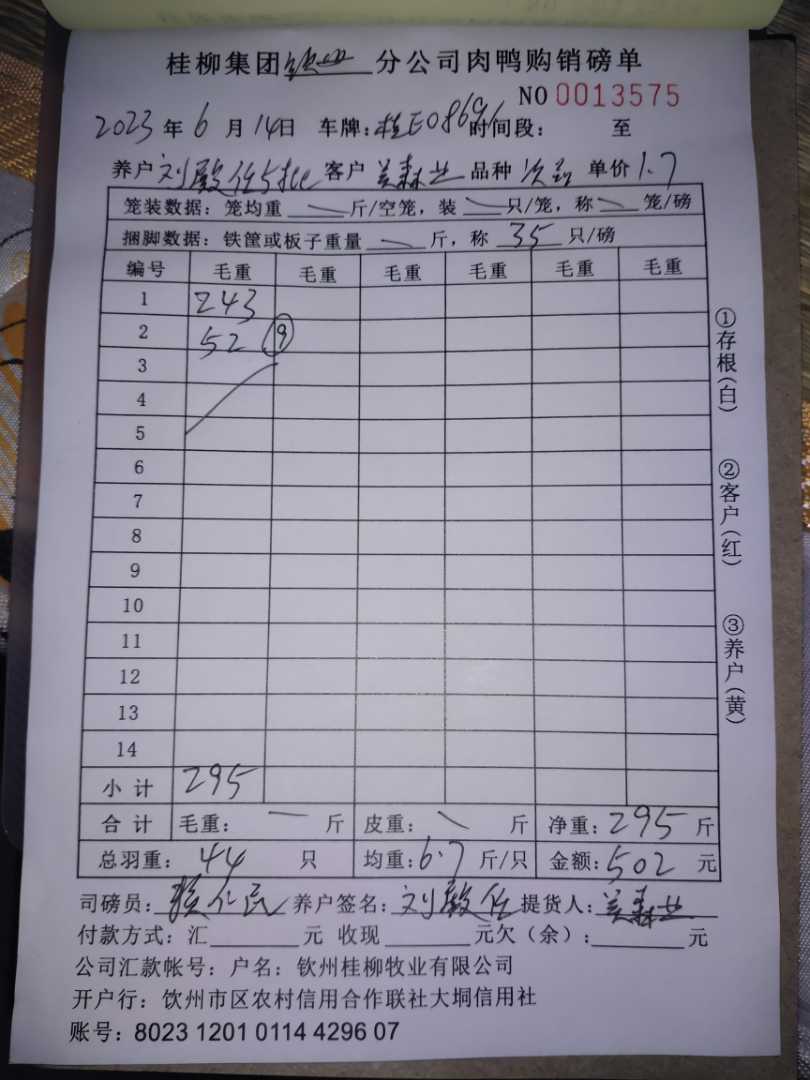 桂柳集团 分公司肉鸭购销磅单
NO 0013575
2023 年 6 月 14日 车牌: 时间段: 至
养户 刘殿任5批 客户 森 品种 次品 单价 1.7
笼装数据:笼均重 斤/空笼,装 只/笼,称 笼/磅
捆脚数据:铁筐或板子重量 斤,称 35 只/磅
编号 毛重 毛重 毛重 毛重 毛重 毛重
1 243
2 52 9
3
4
5
6
7
8
9
10
11
12
13
14
小 计 295
合 计 毛重: 斤 皮重: 斤 净重: 295 斤
总羽重: 44 只 均重: 6.7 斤/只 金额: 502 元
司磅员: 养户签名: 刘殿任 提货人: 森
付款方式:汇 元 收现 元欠(余): 元
公司汇款帐号:户名:钦州桂柳牧业有限公司
开户行:饮州市区农村信用合作联社大垌信用社
账号:8023 1201 0114 4296 07
①存根(白)
②客户(红)
③养户(黄)